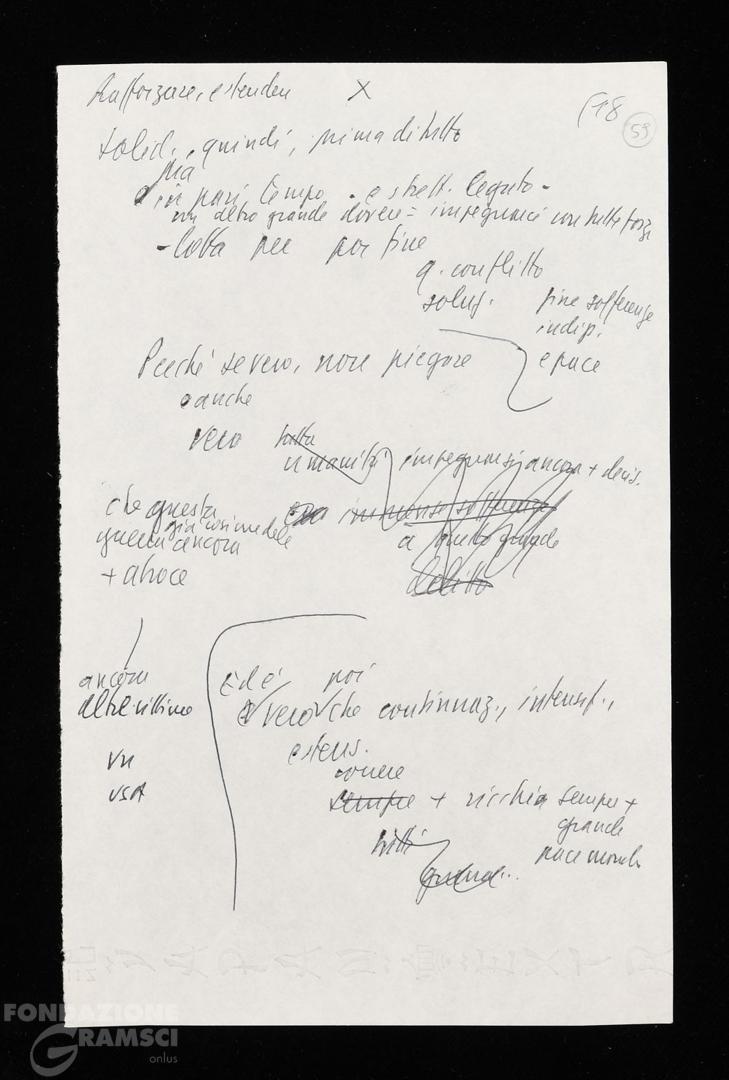 Rafforzare, estendere X
(18
59
solid., quindi, prima di tutto
Ma
in pari tempo - e strett. legato -
un altro grande dovere = impegnarci con tutte forze
- lotta per por fine
q. conflitto
soluz. fine sofferenze
indip.
e pace
Perché se vero, non piegare
è anche
vero tutta
umanità impegnarsi ancora + decis.
che questa immense sofferenze
guerra ancora a questo grande
+ atroce delitto
ancora
altre vittime
VN
USA
Ed è poi
è vero che continuaz., intensif.,
estens.
correre
sempre + rischia sempre +
grande
tutti pace mondo